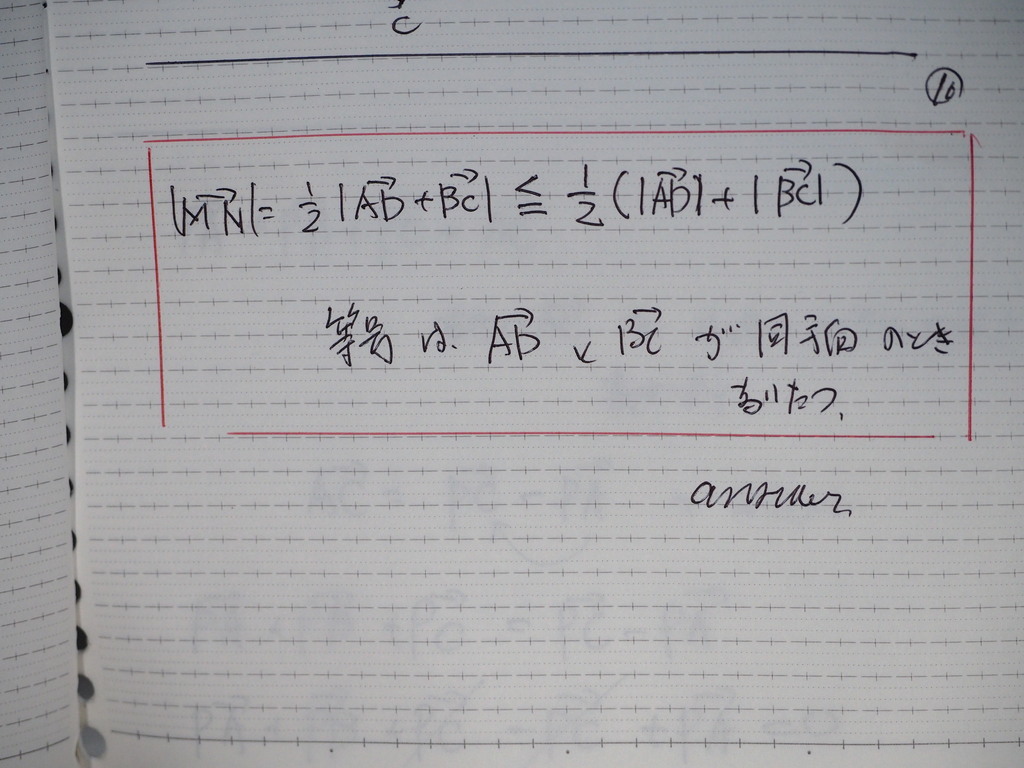 C
⑯
|MN→| = 1/2 |AD→ + BC→| ≦ 1/2 (|AD→| + |BC→|)
等号は、AD→ と BC→ が同方向のとき
なりたつ.
answer